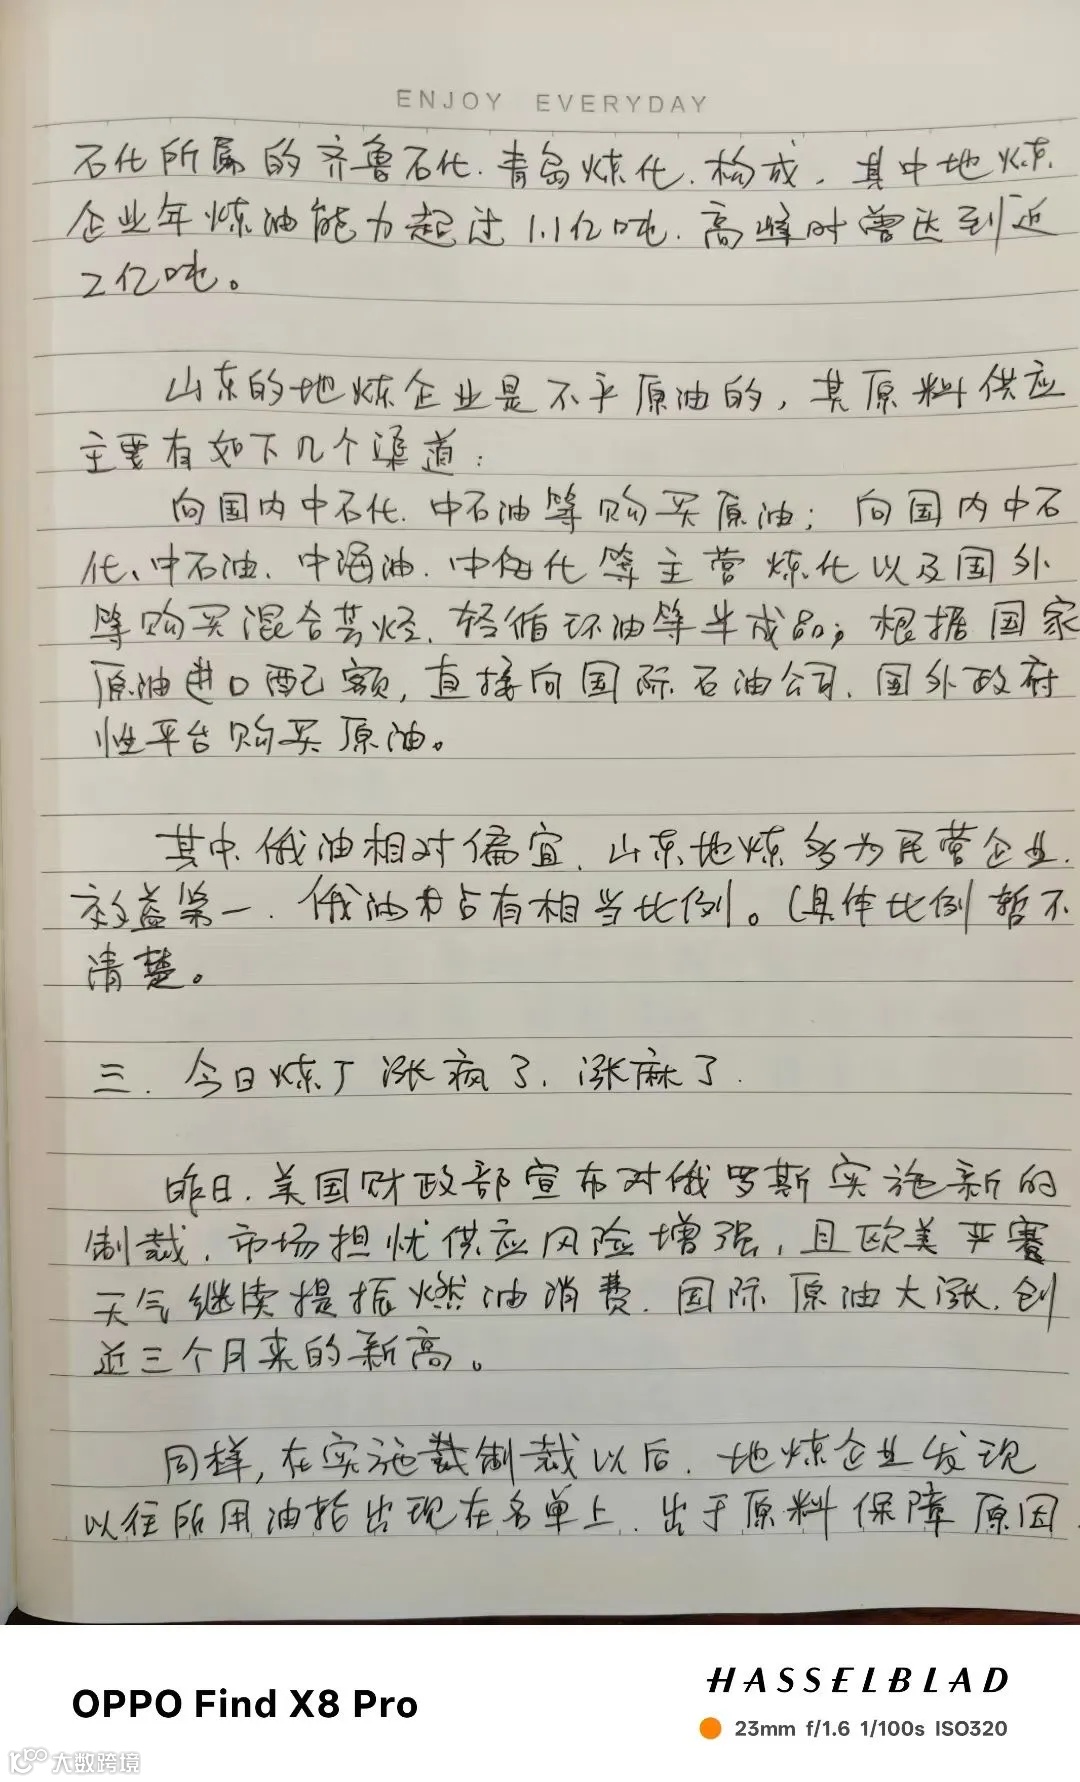 ENJOY EVERYDAY
石化所属的齐鲁石化、青岛炼化、构成，其中地炼
企业年炼油能力起过1.1亿吨、高峰时曾达到近
2亿吨。
山东的地炼企业是不乎原油的，其原料供应
主要有如下几个渠道：
向国内中石化、中石油等购买原油；向国内中石
化、中石油、中海油、中化等主营炼化以及国外
等购买混合芳烃、轻循环油等半成品；根据国家
原油进口配额，直接向国际石油公司、国外政府
性平台购买原油。
其中，俄油相对偏宜，山东地炼多为民营企业，
效益第一，俄油占有相当比例。（具体比例暂不
清楚。
三、今日炼厂涨疯了，涨麻了.
昨日，美国财政部宣布对俄罗斯实施新的
制裁，市场担忧供应风险增强，且欧美严寒
天气继续提振燃油消费，国际原油大涨，创
近三个月来的新高。
同样，在实施制裁以后，地炼企业发现
以往所用油轮出现在名单上，出于原料保障原因，
OPPO Find X8 Pro
HASSELBLAD
23mm f/1.6 1/100s ISO320
大数跨境